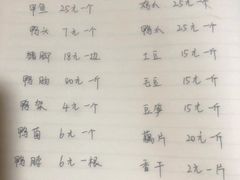 甲鱼 25元一个 鸡爪 25元一斤
鸭头 7元一个 鸭爪 25元一斤
猪脚 18元一边 土豆 15元一斤
鸭脚 40元一斤 毛豆 15元一斤
鸭架 4元一个 豆笋 15元一斤
鸭菌 6元一个 藕片 20元一斤
鸭脖 6元一根 香干 2元一片